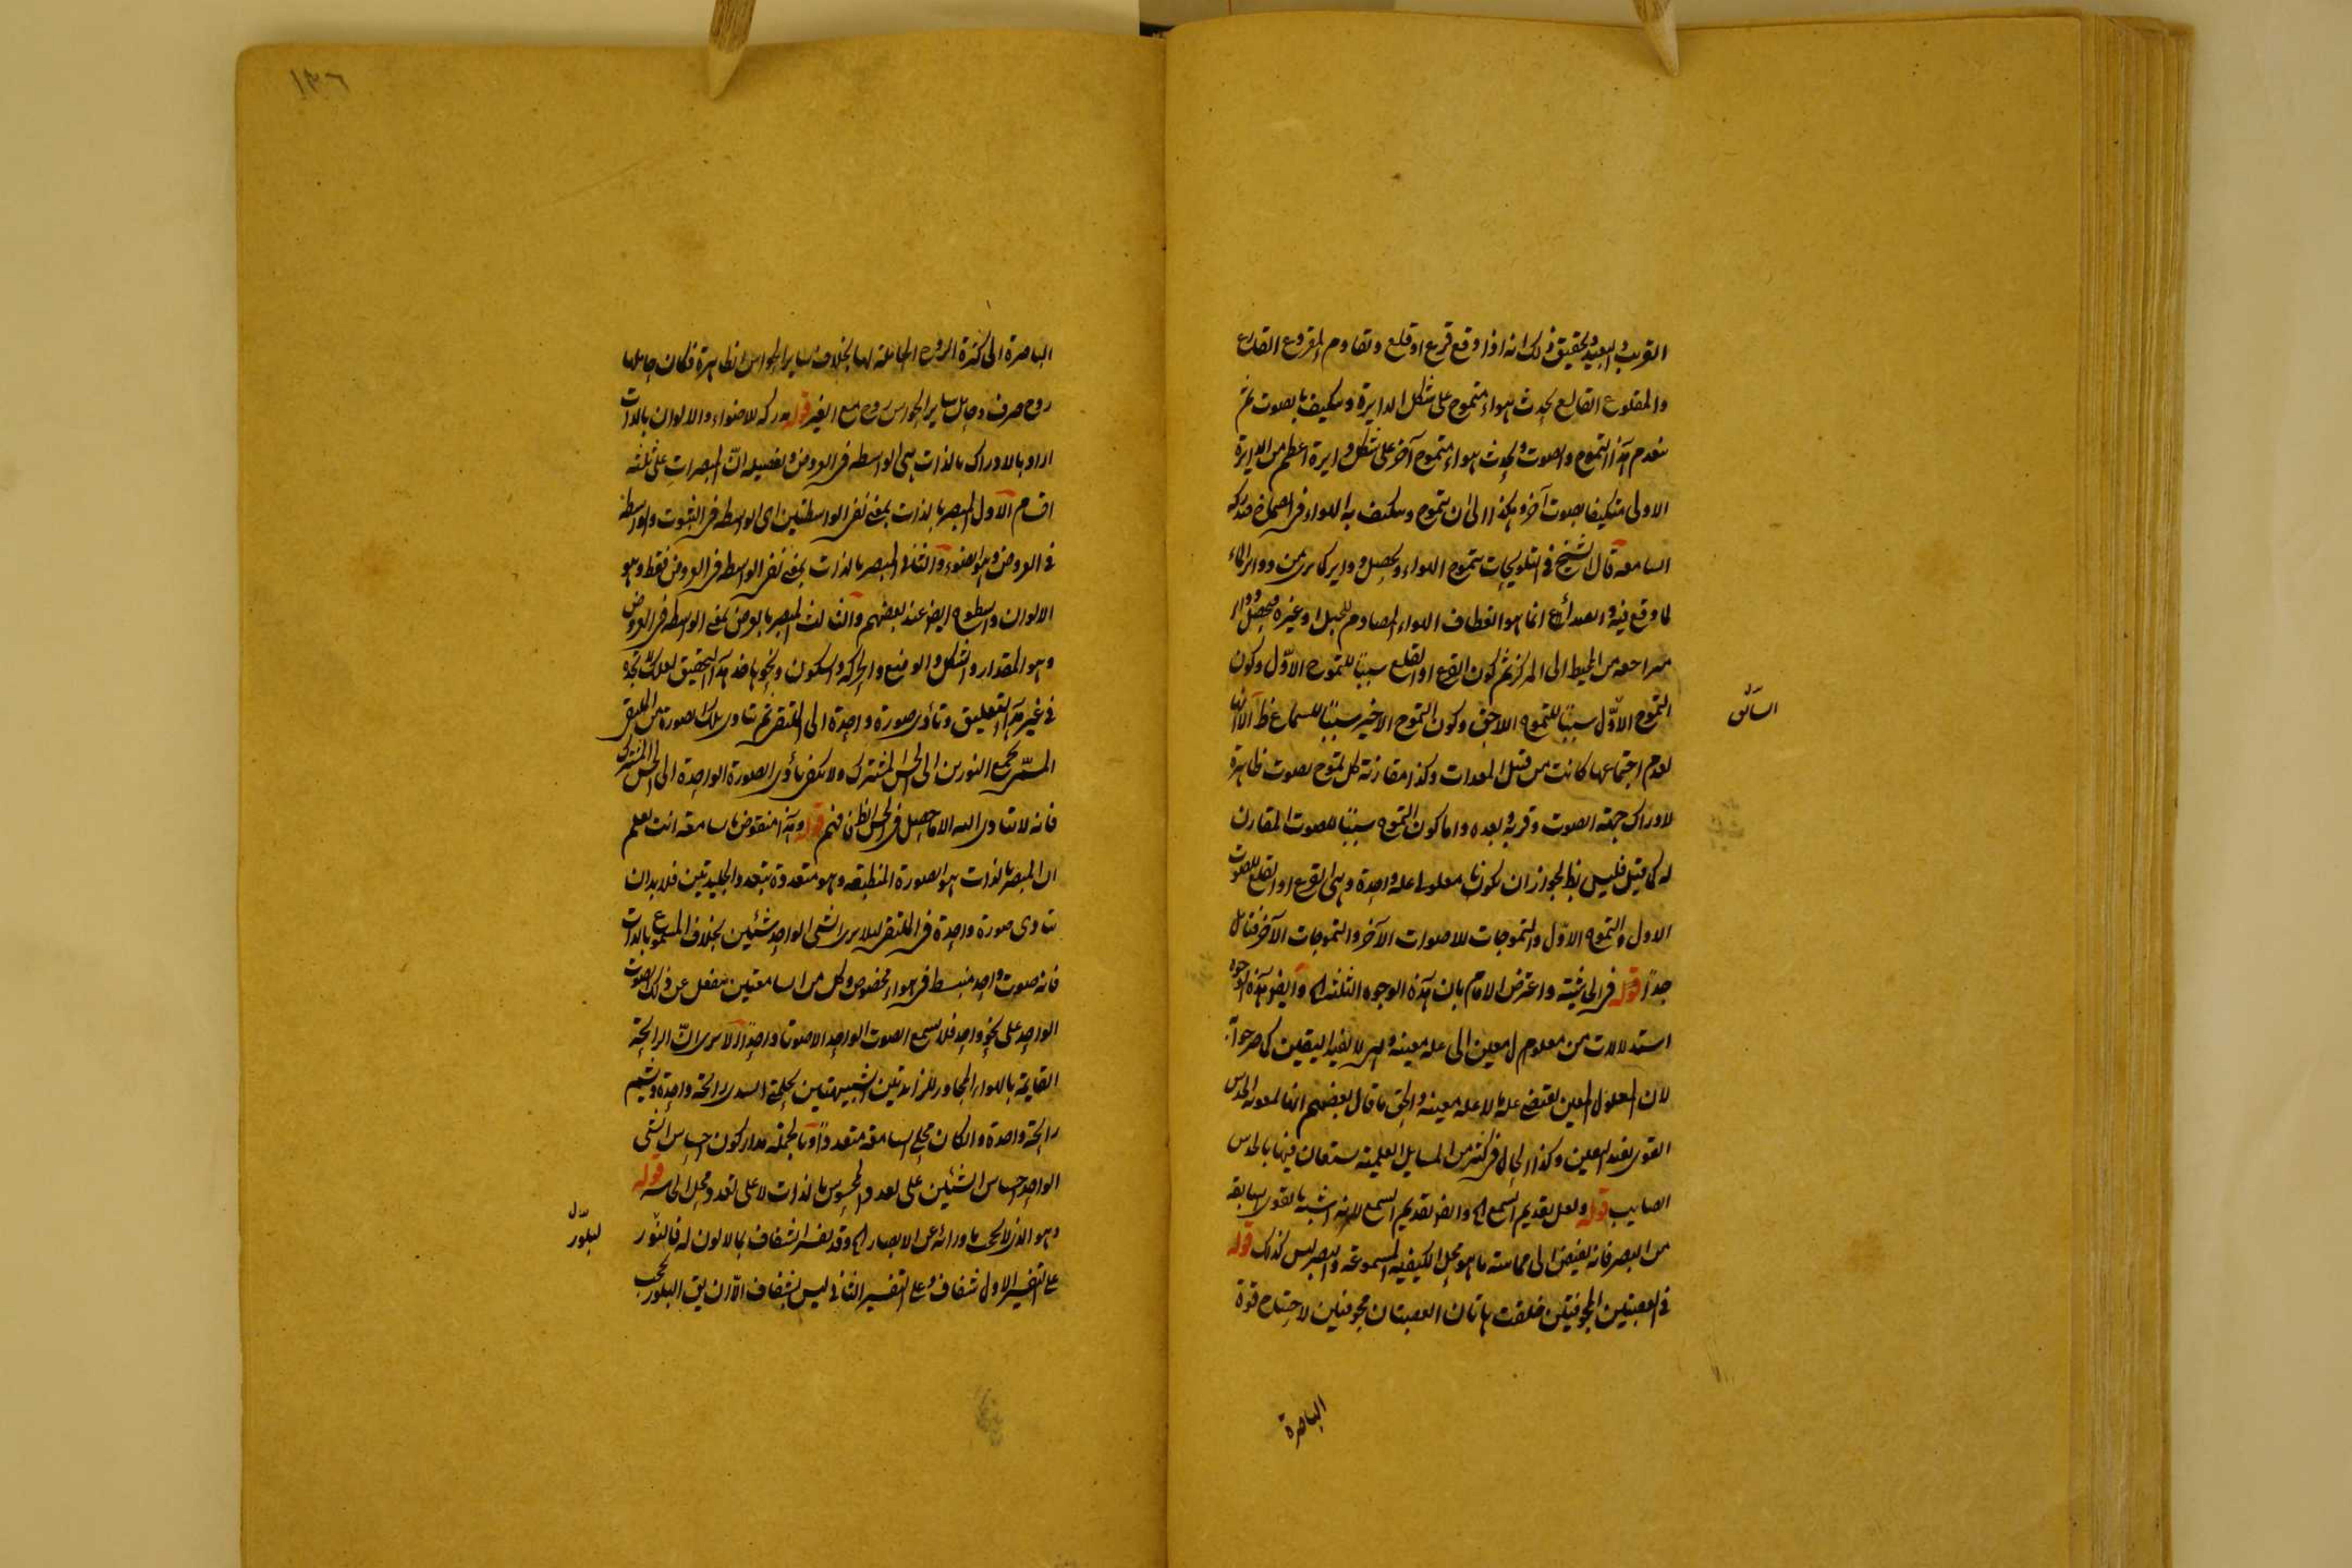 القريب والبعيد وتحقيق ذلك انه اذا وقع قرع او قلع وتقاوم المقروع القارع
والمقلوع القالع يحدث هواء متموج على شكل الدايرة ويتكيف بالصوت ثم
ينعدم هذا التموج والصوت ويحدث هواء متموج آخر على شكل دايرة اعظم من الدايرة
الاولى متكيفا بصوت آخر وهكذا الى ان يتموج ويتكيف به الهواء فى الصماخ فيدركه
السامعة قال الشيخ فى التلويحات يتموج الهواء ويحصل دواير كما يرى من دواير الماء
لما وقع فيه والصداء انما هو انعطاف الهواء المصادم للجبل او غيره فيحصل دواير
متراجعه من المحيط الى المركز ثم كون القرع او القلع سببًا للتموج الاوّل وكون
التموج الاوّل سببًا للتموج اللاحق وكون التموج الاخير سببًا للسماع ظ الا انها
السابق
لعدم اجتماعها كانت من قبيل المعدات وكذا مقارنة كل تموج بصوت ظاهرة
لادراك جهة الصوت وقربه وبعده واما كون التموج سببًا للصوت المقارن
له كما قيل فليس بظ لجواز ان يكونا معلولى علة واحدة وهى القرع او القلع للصوت
الاول والتموج الاوّل والتموجات للاصوات الآخر والتموجات الآخر فتامل
جدًا قوله فى الحاشية واعترض الامام بان هذه الوجوه الثلثة اه وايضا هذه الوجوه
استدلالات من معلوم معين الى علة معينة وهى لا تفيد اليقين كما صرحوا به
لان المعلول المعين يقتضى علة ما لا علة معينة والحق ما قال بعضهم انها لمعونة الحدس
القوى يفيد اليقين وكذا الحال فى كثير من المسايل العلمية يستعان فيها بالحدس
الصايب قوله ولعل تقديم السمع اه وايضا تقديم السمع لانه اشبه بالقوى السابقة
من البصر فانه يفيض الى مماسة ما هو محل الكيفية المسموعة والبصر ليس كذلك قوله
فى العصبتين المجوفتين خلقت هاتان العصبتان مجوفتين لاحتياج قوة
الباصرة
١٣٦
الباصرة الى كثرة الروح الحاملة لها بخلاف ساير الحواس الظاهرة فكان حاملها
روح صرف وحامل ساير الحواس روح مع الغير قوله مدركة للاضواء والالوان بالذات
اراد بالادراك بالذات نفى الواسطه فى العروض وتفصيله انّ المبصرات على ثلثة
اقسام الاول المبصر بالذات بمعنى نفى الواسطتين اى الواسطه فى الثبوت والواسطة
فى العروض وهو الضوء والثانى المبصر بالذات بمعنى نفى الواسطه فى العروض فقط وهو
الالوان والسطوح ايضا عند بعضهم والثالث المبصر بالعرض بمعنى الواسطه فى العروض
وهو المقدار والشكل والوضع والحركة والسكون ونحوها خذ هذا التحقيق لعلك لا تجده
فى غير هذا التعليق وتأدى صورة واحدة الى الملتقى ثم تتادى تلك الصورة من الملتقى
المسمّى بمجمع النورين الى الحس المشترك ولا يكفى تأدى الصورة الواحدة الى الحس المشترك
فانه لا تتادى اليه الا ما حصل فى الحس الظ فافهم قوله وهذا منقوض بالسامعة انت تعلم
ان المبصر بالذات هو الصورة المنطبعة وهو متعددة بتعدد الجليديتين فلا بد ان
تتادى صورة واحدة فى الملتقى لئلا يرى الشى الواحد شئيين بخلاف المسموع بالذات
فانه صوت واحد منبسط فى هواء مخصوص وكل من السامعتين منفعل عن ذلك الصوت
الواحد على نحو واحد فلا تسمع الصوت الواحد الا صوتا واحدًا الا يرى انّ الرايحة
القايمة بالهواء المجاور للزائدتين الشبيهتين بحلمتى الثدى رايحة واحدة وتشم
رايحة واحدة والكان محل السامعة متعددًا وبالجملة مدار كون احساس الشى
الواحد احساس الشئيين على تعدد المحسوس بالذات لا على تعدد محل الحاسه قوله
وهو الذى لا يحجب ما ورائه عن الابصار اه وقد يفسر الشفاف بما لا لون له فالبلور
لبلوّر
على التفسير الاول شفاف وعلى التفسير الثانى ليس بشفاف الّا ان يق البلور يحجب